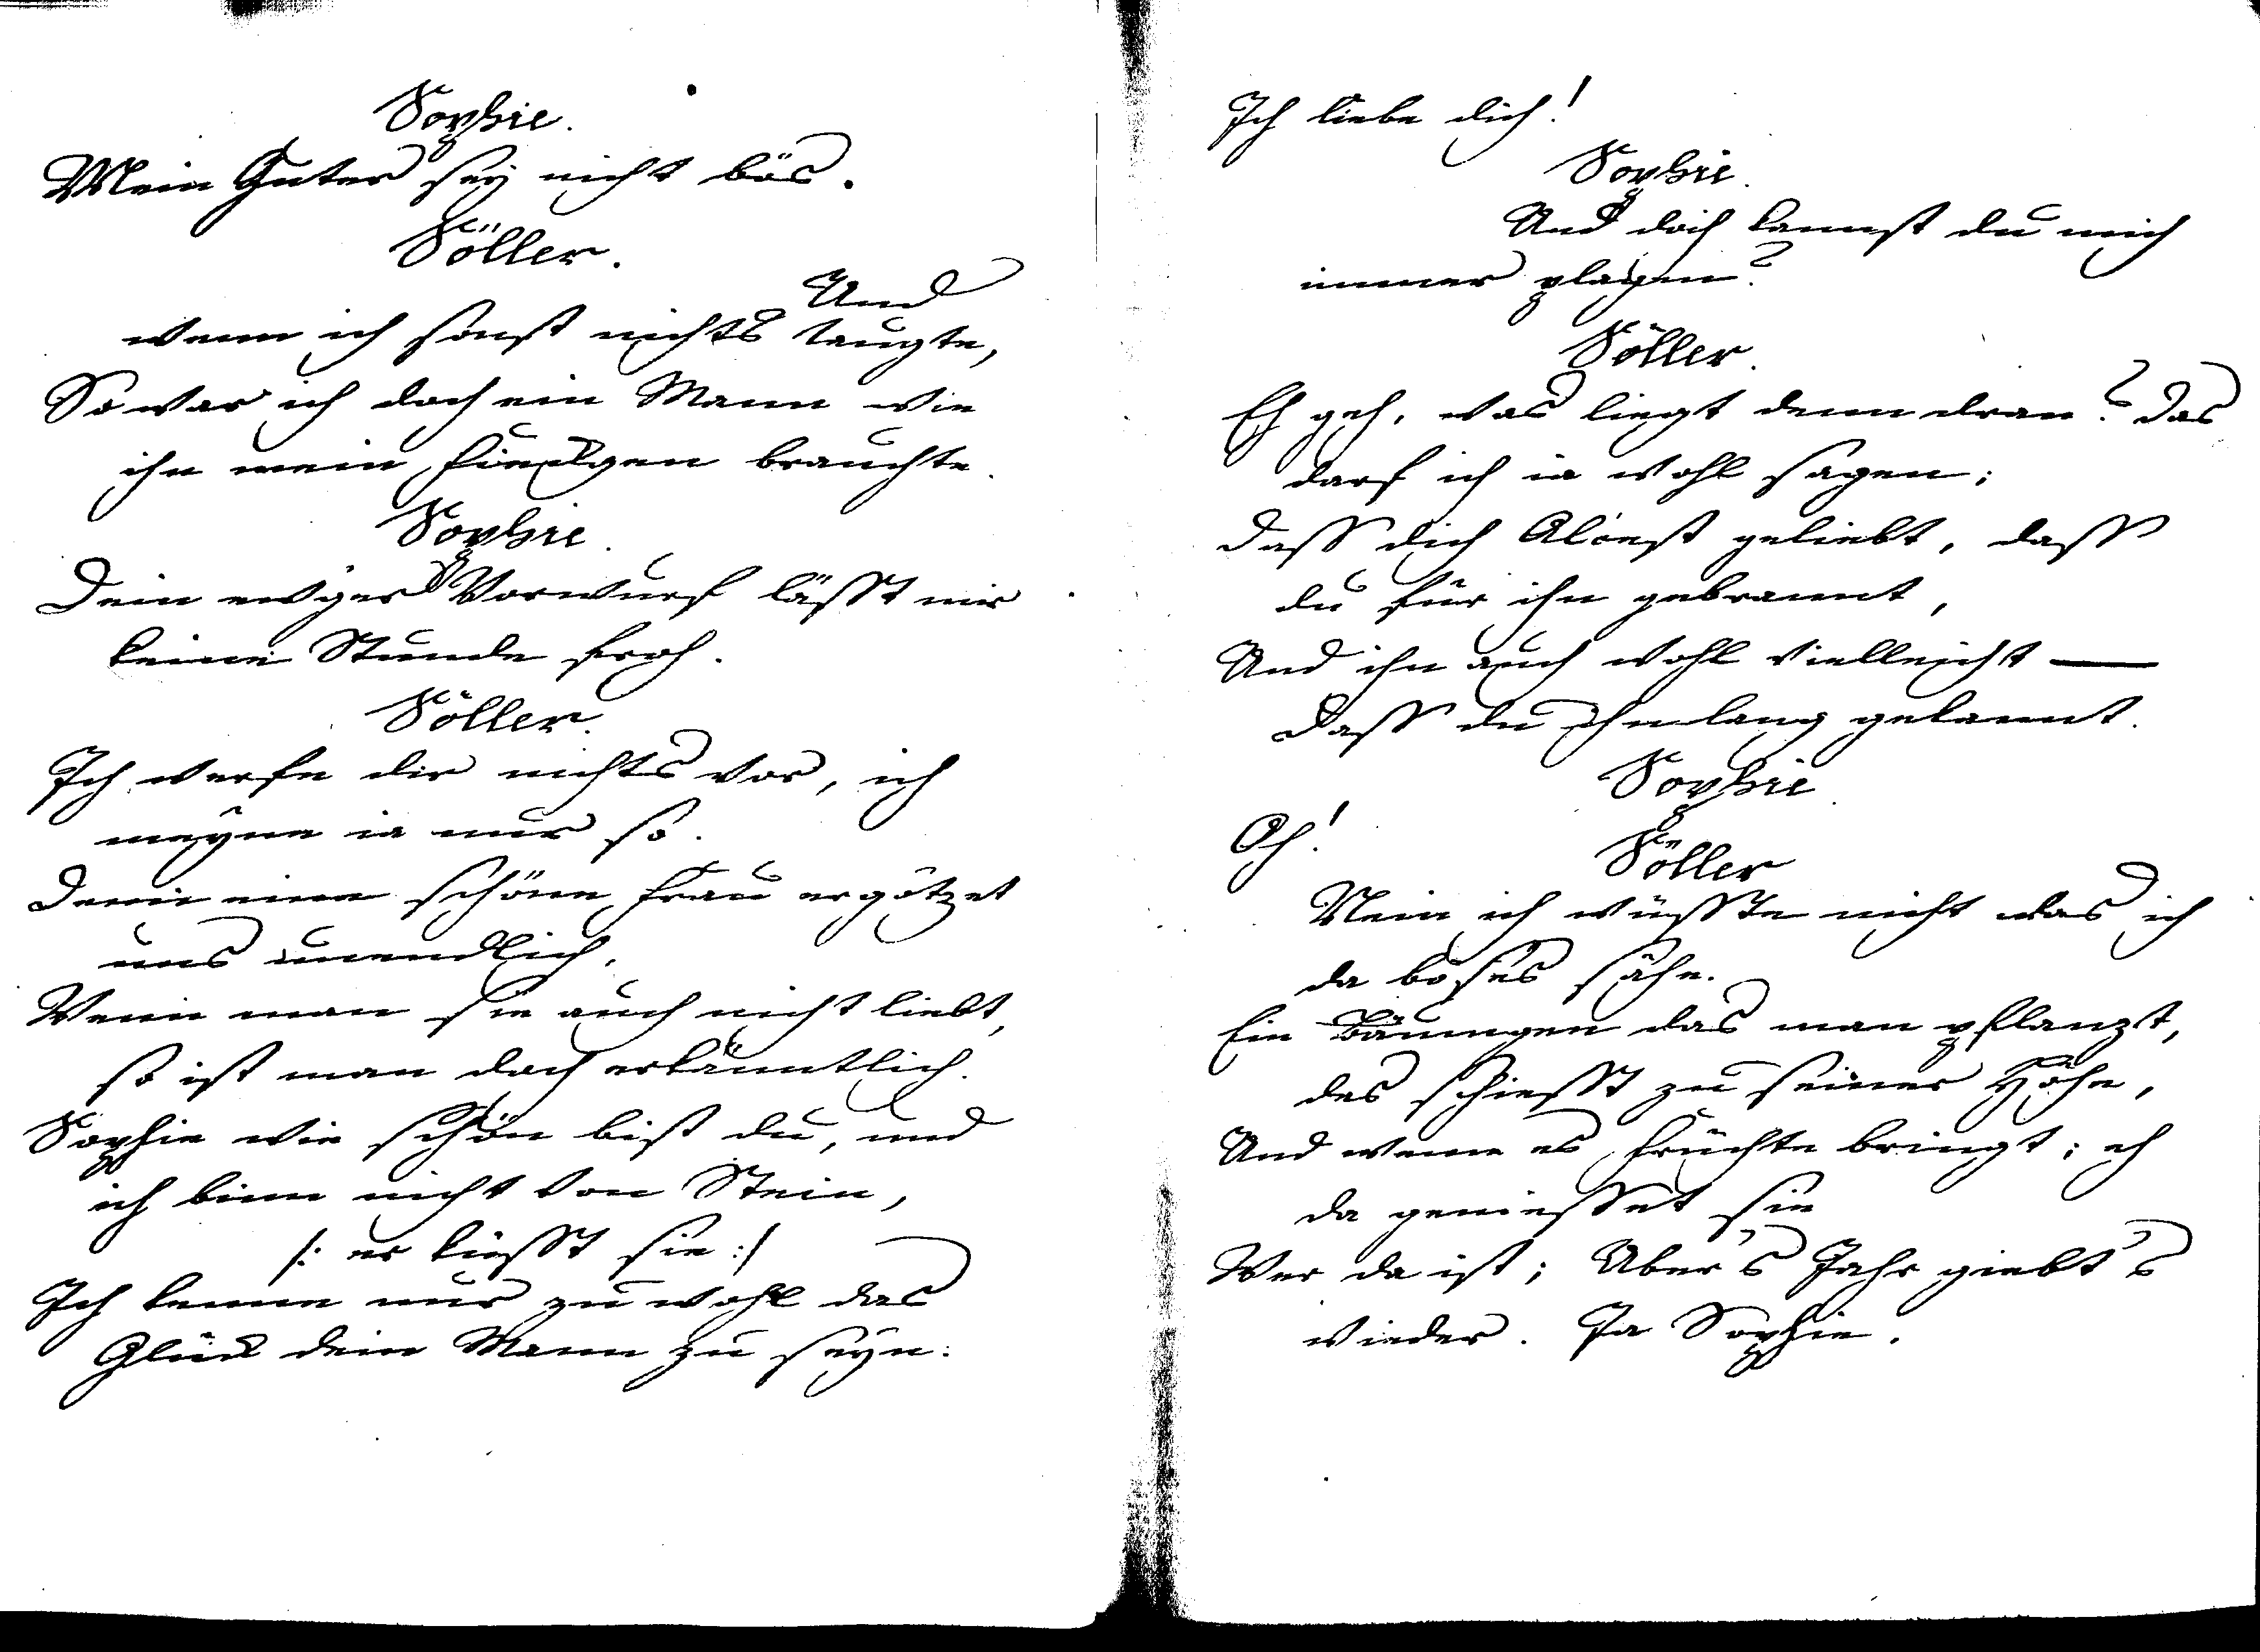 Sophie.
Mein Guter sey nicht bös.
Söller.
Und
wenn ich sonst nichts taugte,
So war ich doch ein Mann wie
ihn mein Fieckgen brauchte.
Sophie.
Dein ew'ger Vorwurf lässt mir
keine Stunde froh.
Söller.
Ich werfe dir nichts vor, ich
meyne ia nur so.
Denn eine schöne Frau ergötzet
uns unendlich,
Wenn man sie auch nicht liebt,
so ist man doch erkänntlich.
Sophie wie schön bist du, und
ich binn nicht von Stein,
/: er küsst sie :/
Ich kenne nur zu wohl das
Glück dein Mann zu seyn.
Ich liebe dich!
Sophie.
Und doch kannst du mich
immer plagen?
Söller.
Eh geh, was liegt denn dran? Das
darf ich ia wohl sagen;
Dass dich Alcest geliebt, dass
du für ihn gebrannt,
Und ihn auch wohl vielleicht —
Dass du ihn lang gekannt.
Sophie.
Oh!
Söller
Nein ich wüsste nicht was ich
da böses sähe.
Ein Bäumgen das man pflanzt,
das schiesst zu seiner Höhe,
Und wenn es Früchte bringt; eh
da geniesset sie
Wer da ist; Uber's Jahr giebt's
wieder. Ja Sophie.